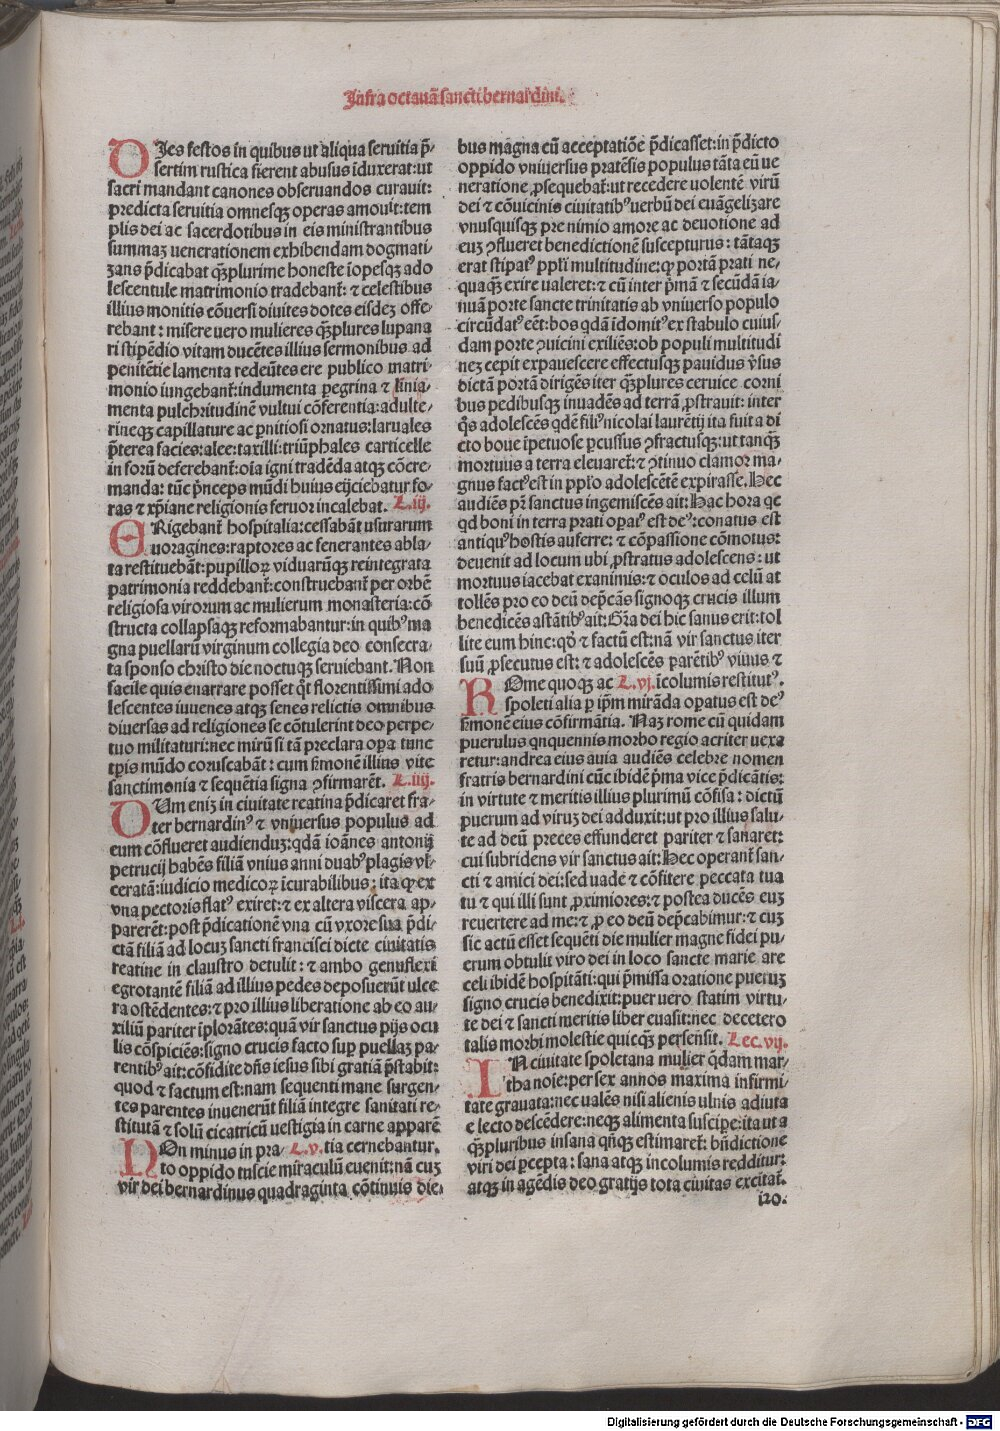 Infra octauā sancti bernardini.
DIes festos in quibus ut aliqua seruitia p̄-
sertim rustica fierent abusus īduxerat: ut
sacri mandant canones obseruandos curauit:
predicta seruitia omnesqꝫ operas amouit: tem
plis dei ac sacerdotibus in eis ministrantibus
summaꝫ uenerationem exhibendam dogmati-
zans p̄dicabat qꝫplurime honeste īopesqꝫ ado
lescentule matrimonio tradebant᷑: ⁊ celestibus
illius monitis cōuersi diuites dotes eisdeꝫ offe-
rebant: misere uero mulieres qꝫplures lupana
ri stipēdio vitam ducētes illius sermonibus ad
penitētie lamenta redeūtes ere publico matri-
monio iungebant᷑: indumenta pegrina ⁊ linia-
menta pulchritudinē vultui cōferentia: adulte-
rineqꝫ capillature ac pnitiosi ornatus: laruales
p̄terea facies: alee: taxilli: triūphales carticelle
in forū deferebant᷑: oīa igni tradēda atqꝫ cōcre-
manda: tūc p̄nceps mūdi huius eijciebatur fo-
ras ⁊ xp̄iane religionis feruor incalebat. L.iij.
ERigebant᷑ hospitalia: cessabāt usurarum
uoragines: raptores ac fenerantes abla-
ta restituebāt: pupilloꝝ viduarūqꝫ reintegrata
patrimonia reddebant᷑: construebant᷑ per orbē
religiosa virorum ac mulierum monasteria: cō
structa collapsaqꝫ reformabantur: in quibꝰ ma
gna puellarū virginum collegia deo consecra-
ta sponso christo die noctuqꝫ seruiebant. Non
facile quis enarrare posset qͦt florentissimi ado
lescentes iuuenes atqꝫ senes relictis omnibus
diuersas ad religiones se cōtulerint deo perpe-
tuo militaturi: nec mirū si tā preclara opa tunc
tp̄is mūdo coruscabāt: cum sͬmonem illius vite
sanctimonia ⁊ sequētia signa ꝯfirmarēt. L.iiij.
DUm eniꝫ in ciuitate reatina p̄dicaret fra-
ter bernardinꝰ ⁊ vniuersus populus ad
eum cōflueret audienduꝫ: qdā ioānes antonij
petrucij habēs filiā vnius anni duabꝰ plagis vl̓-
ceratā: iudicio medicoꝝ īcurabilibus: ita qꝫ ex
vna pectoris flatꝰ exiret: ⁊ ex altera viscera ap-
parerēt: post p̄dicationē una cū vxore sua p̄di-
ctā filiā ad locuꝫ sancti francisci dicte ciuitatis
reatine in claustro detulit: ⁊ ambo genuflexi
egrotantē filiā ad illius pedes deposuerūt ulce
ra ostēdentes: ⁊ pro illius liberatione ab eo au-
xiliū pariter īplorātes: quā vir sanctus pijs ocu
lis cōspiciēs: signo crucis facto sup puellaꝫ pa-
rentibꝰ ait: cōfidite dn̄s iesus sibi gratiā p̄stabit:
quod ⁊ factum est: nam sequenti mane surgen-
tes parentes inuenerūt filiā integre sanitati re-
stitutā ⁊ solū cicatricū uestigia in carne apparē
NOn minus in pra- L.v. tia cernebantur.
to oppido tuscie miraculū euenit: nā cuꝫ
vir dei bernardinus quadraginta cōtinuis die-
bus magna cū acceptatiōe p̄dicasset: in p̄dicto
oppido vniuersus pratēsis populus tāta cū ue
neratione ꝓsequebat᷑: ut recedere uolentē virū
dei ⁊ cōuicinis ciuitatibꝰ uerbū dei euāgelizare
vnusquisqꝫ pre nimio amore ac deuotione ad
euꝫ ꝯflueret benedictionē suscepturus: tātaqꝫ
erat stipatꝰ ppl̄i multitudine: qꝫ portā prati ne-
quaqꝫ exire ualeret: ⁊ cū inter p̄mā ⁊ secūdā ia-
nuā porte sancte trinitatis ab vniuerso populo
circūdatꝰ eēt: bos qdā īdomitꝰ ex stabulo cuius-
dam porte ꝯuicini exiliēs: ob populi multitudi
neꝫ cepit expauescere effectusqꝫ pauidus v̓sus
dictā portā dirigēs iter qꝫplures ceruice corni
bus pedibusqꝫ inuadēs ad terrā ꝓstrauit: inter
qͦs adolescēs qdē filiꝰ nicolai laurētij ita fuit a di
cto boue īpetuose pcussus ꝯfractusqꝫ: ut tanqꝫ
mortuus a terra eleuaret᷑: ⁊ ꝯtinuo clamor ma-
gnus factꝰ est in ppl̄o adolescētē expirasse. Hec
audiēs pr̄ sanctus ingemiscēs ait: Hac hora qe
qd boni in terra prati opatꝰ est deꝰ: conatus est
antiquꝰ hostis auferre: ⁊ cōpassione cōmotus:
deuenit ad locum ubi ꝓstratus adolescens: ut
mortuus iacebat exanimis: ⁊ oculos ad celū at
tollēs pro eo deū dep̄cās signoqꝫ crucis illum
benedicēs astātibꝰ ait: Gr̄a dei hic sanus erit: tol
lite eum hinc: qd̓ ⁊ factū est: nā vir sanctus iter
suū ꝓsecutus est: ⁊ adolescēs parētibꝰ viuus ⁊
ROme quoqꝫ ac L.vj. īcolumis restitutꝰ.
spoleti alia p ip̄m mirāda opatus est deꝰ
sͬmonē eius cōfirmātia. Naꝫ rome cū quidam
puerulus qnquennis morbo regio acriter uexa
retur: andrea eius auia audiēs celebre nomen
fratris bernardini cūc ibidē p̄ma vice p̄dicātis:
in virtute ⁊ meritis illius plurimū cōfisa: dictū
puerum ad viruꝫ dei adduxit: ut pro illius salu-
te ad deū preces effunderet pariter ⁊ sanaret:
cui subridens vir sanctus ait: Hec operant᷑ san-
cti ⁊ amici dei: sed uade ⁊ cōfitere peccata tua
tu ⁊ qui illi sunt ꝓximiores: ⁊ postea ducēs euꝫ
reuertere ad me: ⁊ ꝓ eo deū dep̄cabimur: ⁊ cuꝫ
sic actū esset sequēti die mulier magne fidei pu-
erum obtulit viro dei in loco sancte marie are
celi ibidē hospitāti: qui p̄missa oratione pueruꝫ
signo crucis benedixit: puer uero statim virtu-
te dei ⁊ sancti meritis liber euasit: nec decetero
talis morbi molestie quicqꝫ persensit. Lec.vij.
IN ciuitate spoletana mulier qdam mar-
tha noīe: per sex annos maxima infirmi-
tate grauata: nec ualēs nisi alienis ulnis adiuta
e lecto descēdere: neqꝫ alimenta suscipe: ita ut a
qꝫpluribus insana qn̄qꝫ estimaret᷑: bn̄dictione
viri dei pcepta: sana atqꝫ incolumis redditur:
atqꝫ in agēdis deo gratijs tota ciuitas excitat᷑.
120.
Digitalisierung gefördert durch die Deutsche Forschungsgemeinschaft - DFG